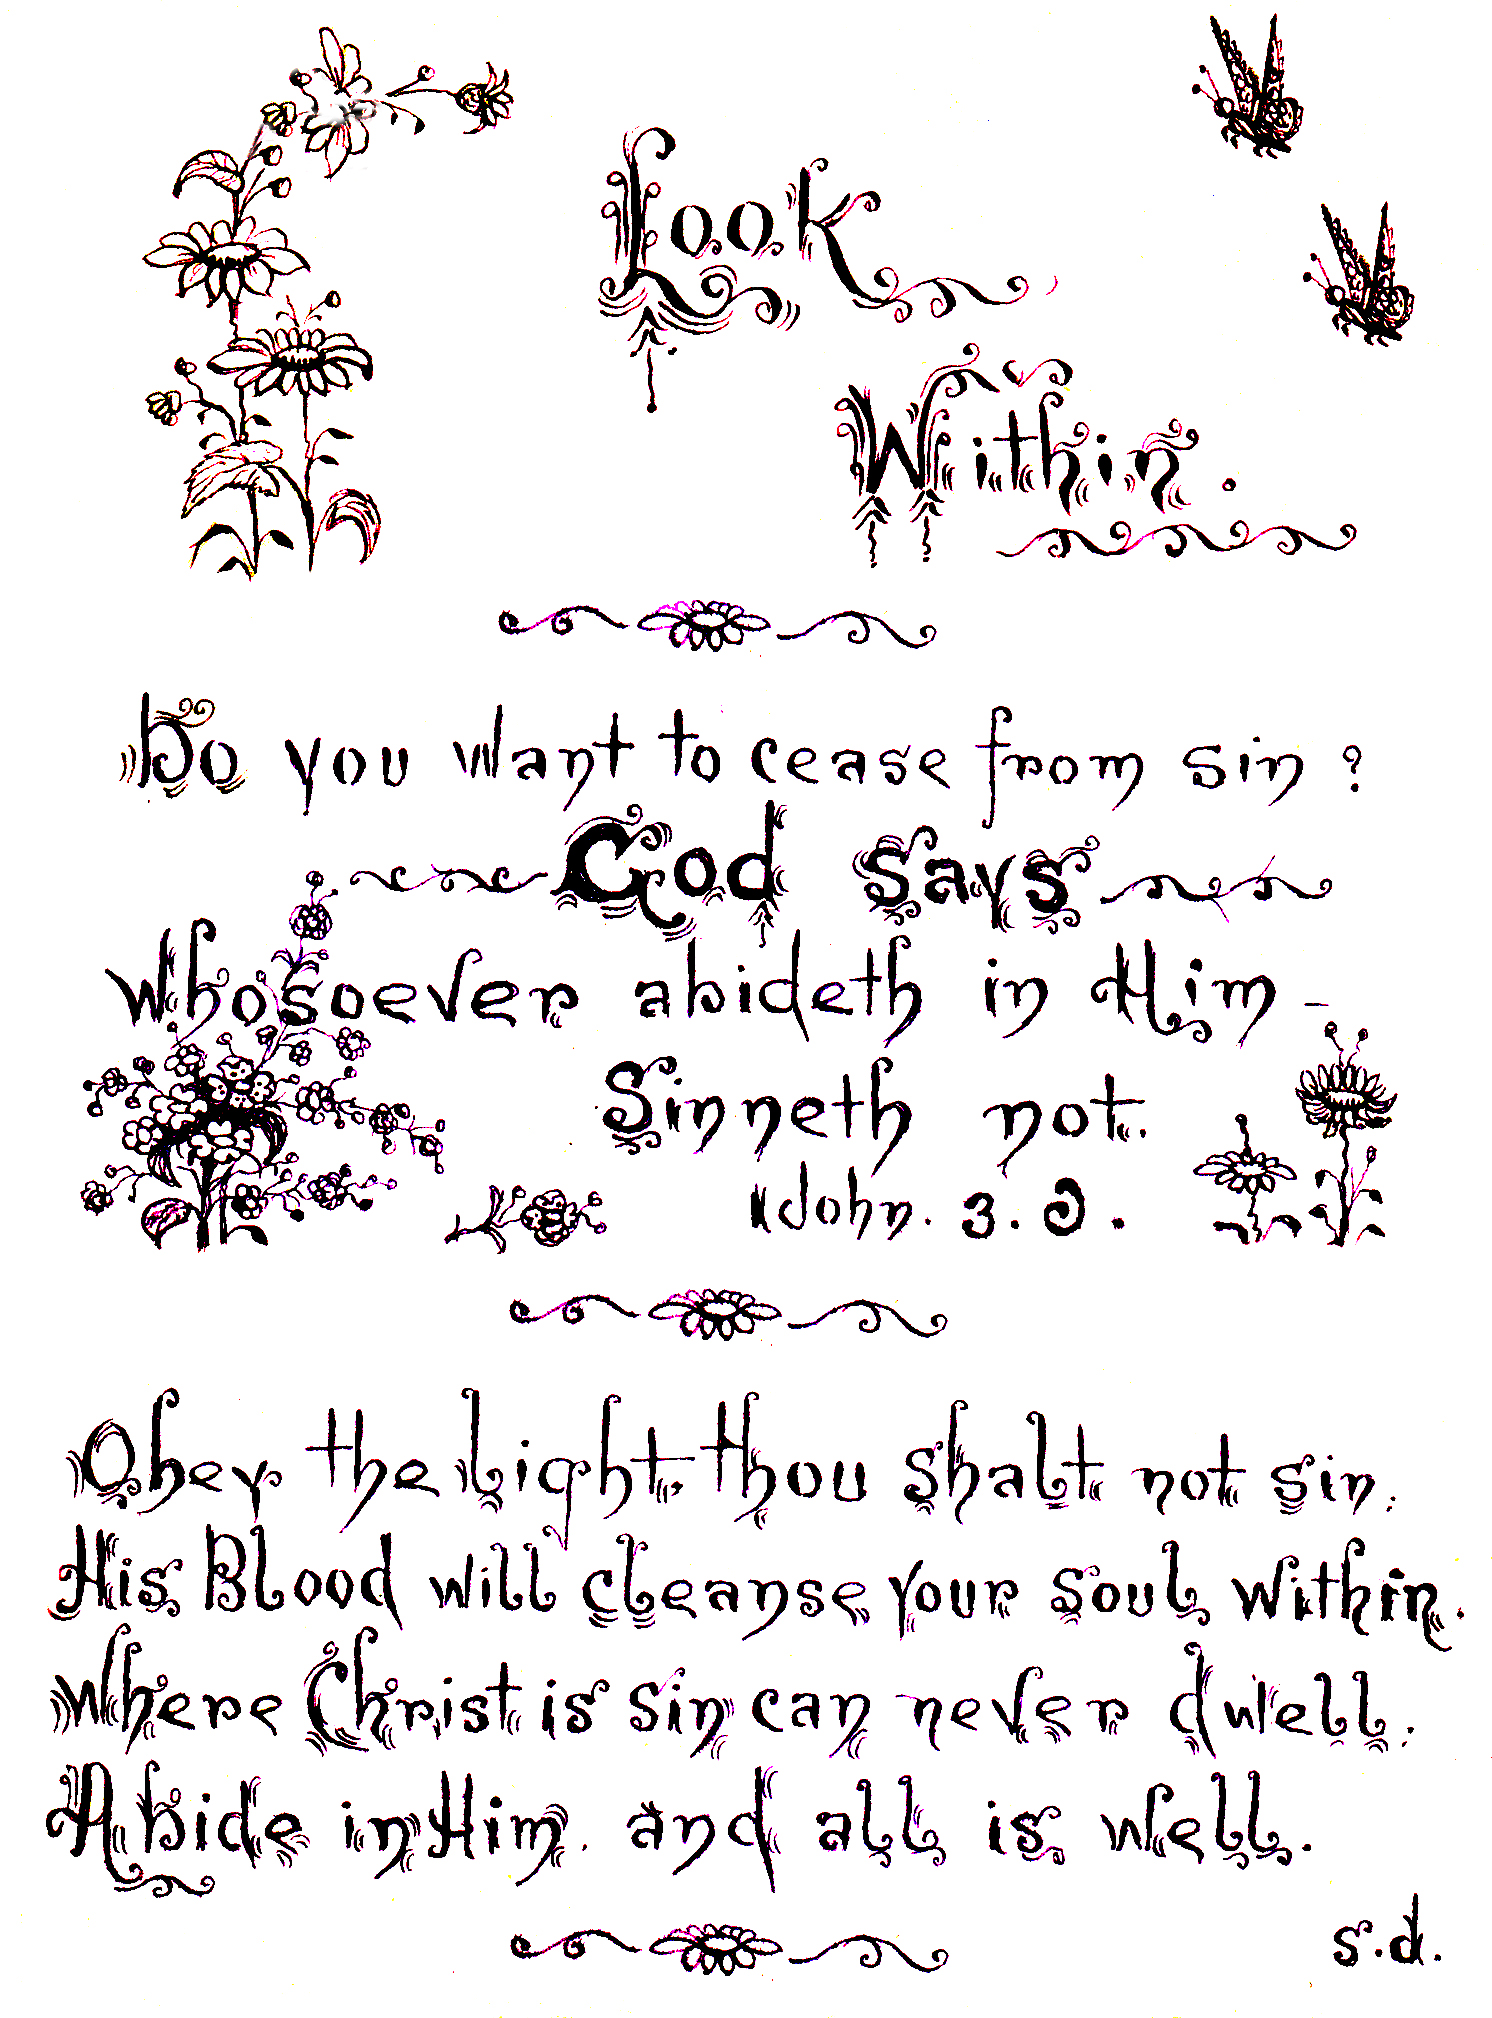 Look
Within.
Do you want to cease from sin?
God says
Whosoever abideth in Him -
Sinneth not.
John. 3.
Obey the Light, thou shalt not sin;
His Blood will cleanse your soul within.
Where Christ is sin can never dwell;
Abide in Him, and all is well.
s.d.